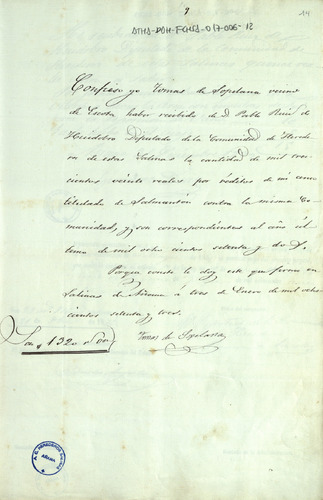 9
14
ATHA-DAH-FCHSA-017-006-12
Confieso yo Tomas de Sopelana vecino
de Escota haber recibido de D. Pablo Ruiz de
Huidobro Diputado de la Comunidad de Herede
ra de estas Salinas la cantidad de mil tres
cientos veinte reales por réditos de mi censo
titulado de Salmanton contra la misma Co
munidad, y son correspondientes al año úl
timo de mil ocho cientos setenta y dos,
Para que conste le doy este que firmo en
Salinas de Añana á tres de Enero de mil ocho
cientos setenta y tres.
Son 1320
Tomas de Sopelana
AÑANA